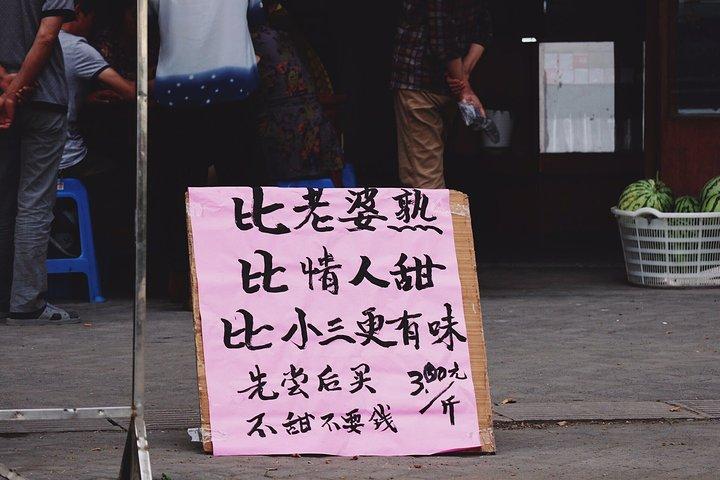 比老婆熟
比情人甜
比小三更有味
先尝后买 3.00元/斤
不甜不要钱